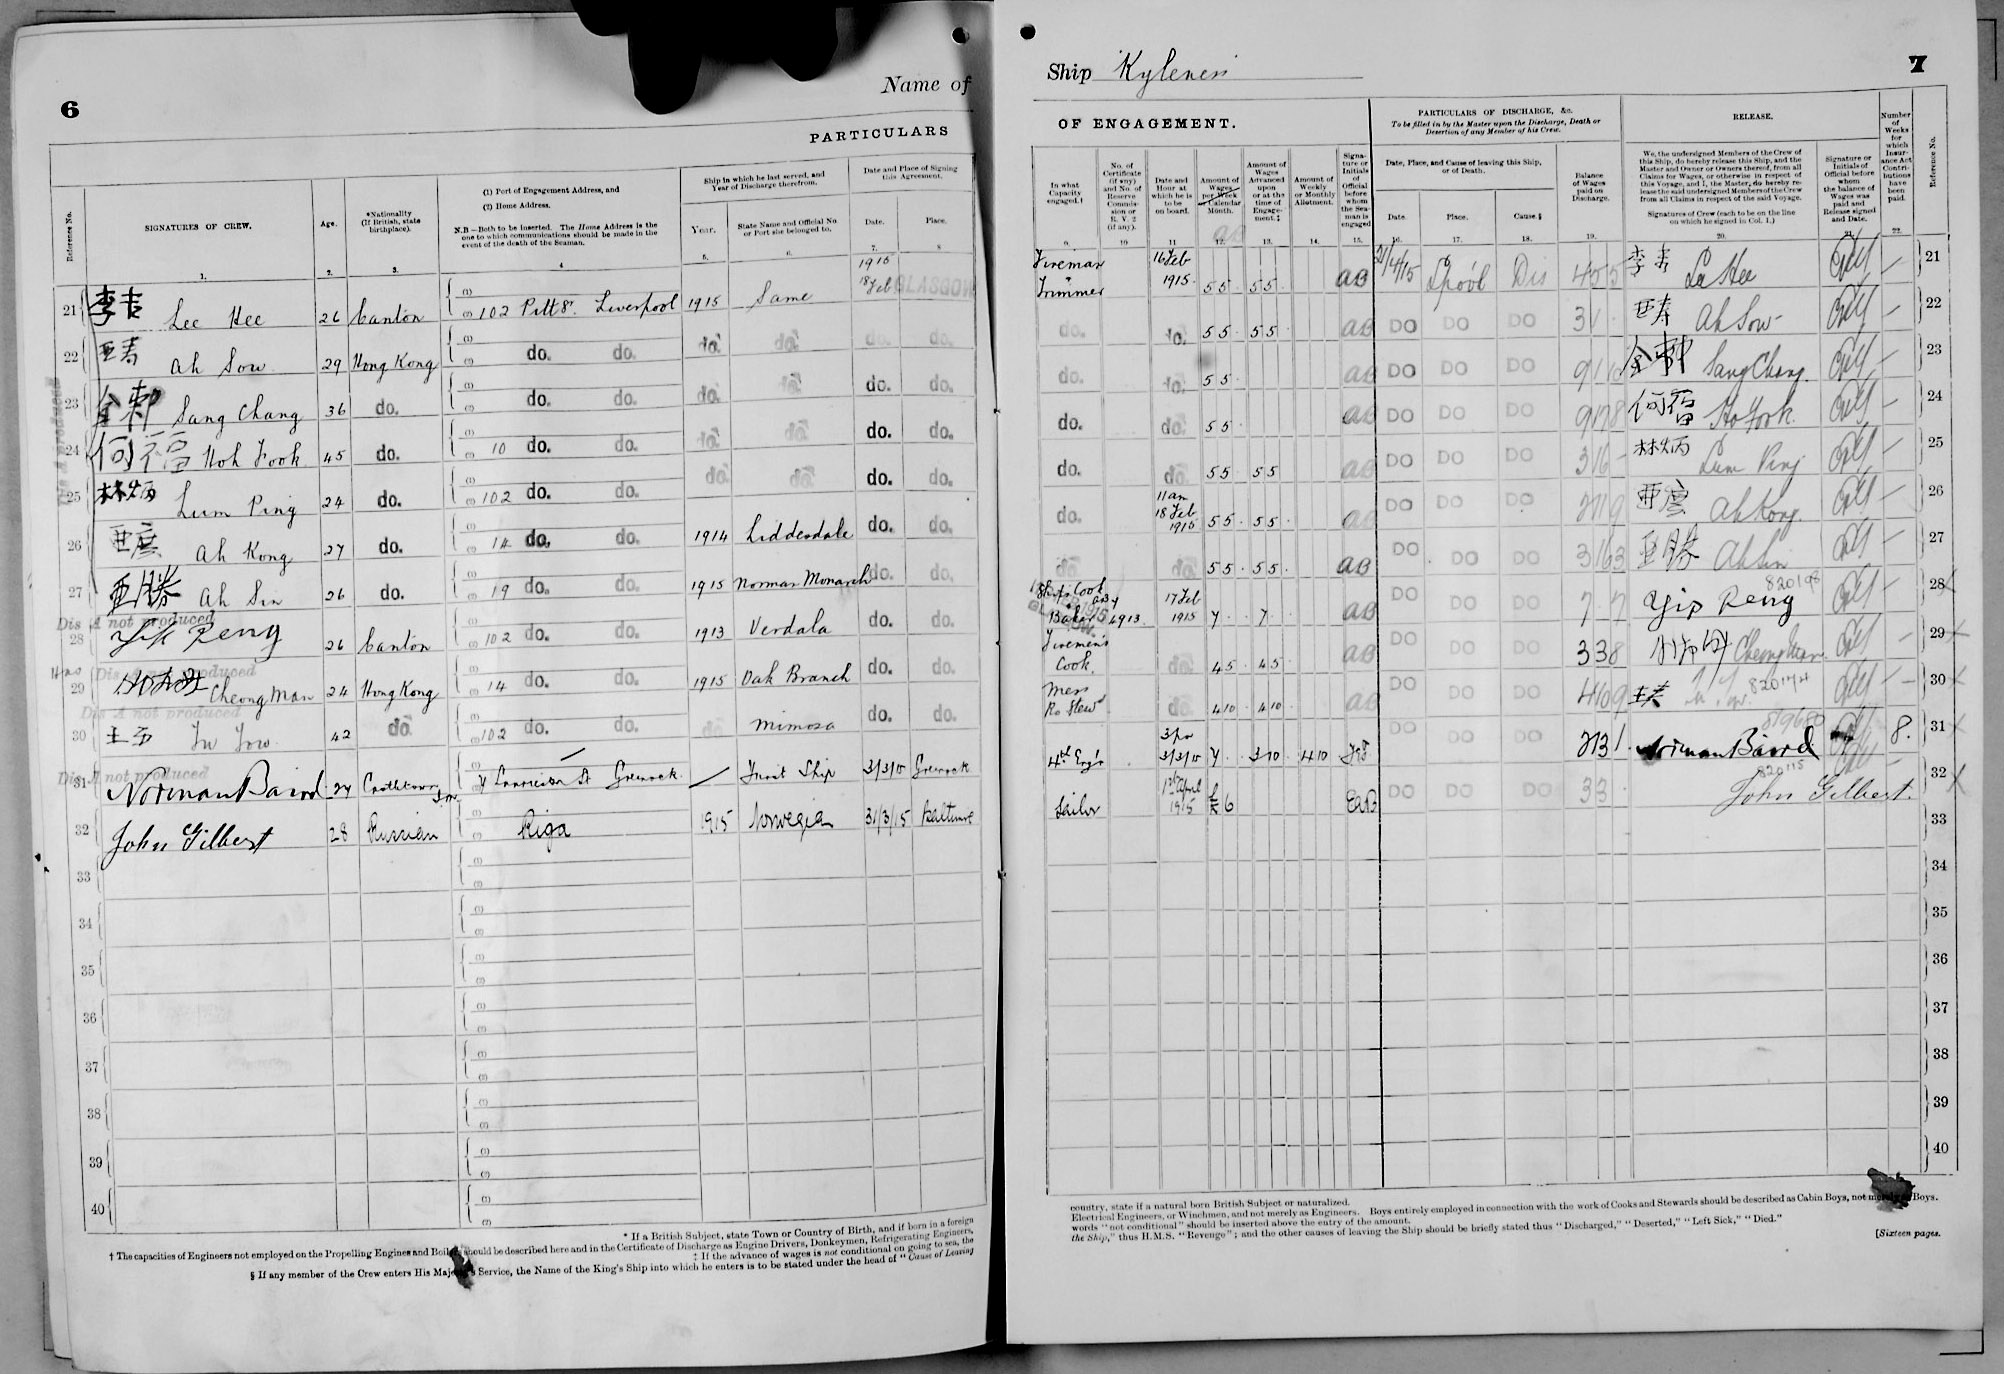 6
Name of
PARTICULARS
Reference No.
SIGNATURES OF CREW.
Age.
*Nationality
(If British, state
birthplace).
(1) Port of Engagement Address, and
(2) Home Address.
N.B—Both to be inserted. The Home Address is the
one to which communications should be made in the
event of the death of the Seaman.
Ship in which he last served, and
Year of Discharge therefrom.
Year.
State Name and Official No.
or Port she belonged to.
Date and Place of Signing
this Agreement.
Date.
Place.
1. 2. 3. 4 5. 6. 7. 8
1915
21 李 Lee Hee 26 Canton 102 Pitt St. Liverpool 1915 Same 18 Feb GLASGOW
22 Ah Sow 29 Hong Kong do. do. do. do. do. do.
23 Sang Chang 36 do. do. do. do. do. do. do.
24 何福 Hoh Fook 45 do. 10 do. do. do. do. do. do.
25 林炳 Lum Ping 24 do. 102 do. do. do. do. do. do.
26 Ah Kong 27 do. 14 do. do. 1914 Liddesdale do. do.
27 亜勝 Ah Sin 26 do. 19 do. do. 1915 Norman Monarch do. do.
Dis A not produced
28 Yip Peng 26 Canton 102 do. do. 1913 Verdala do. do.
Dis A not produced
29 Cheong Man 24 Hong Kong 14 do. do. 1915 Oak Branch do. do.
Dis A not produced
30 42 do. 102 do. do. do. Mimosa do. do.
Dis A not produced
31 Norman Baird 24 St Greenock First Ship 3/3/15 Greenock
32 John Gilbert 28 Russian Riga 1915 Norwegian 31/3/15 Baltimore
33
34
35
36
37
38
39
40
* If a British Subject, state Town or Country of Birth, and if born in a foreign
† The capacities of Engineers not employed on the Propelling Engines and Boilers should be described here and in the Certificate of Discharge as Engine Drivers, Donkeymen, Refrigerating Engineers,
‡ If the advance of wages is not conditional on going to sea, the
§ If any member of the Crew enters His Majesty's Service, the Name of the King's Ship into which he enters is to be stated under the head of "Cause of Leaving
Ship
7
OF ENGAGEMENT.
PARTICULARS OF DISCHARGE, &c.
To be filled in by the Master upon the Discharge, Death or
Desertion of any Member of his Crew.
RELEASE.
Number
of
Weeks
for
which
Insur-
ance Act
Contri-
butions
have
been
paid.
Reference No.
In what
Capacity
engaged.†
No. of
Certificate
(if any)
and No. of
Reserve
Commis-
sion or
R. V. 2
(if any).
Date and
Hour at
which he is
to be
on board.
Amount of
Wages
per Week
or Calendar
Month.
Amount of
Wages
Advanced
upon
or at the
time of
Engage-
ment.‡
Amount of
Weekly
or Monthly
Allotment.
Signa-
ture or
Initials
of
Official
before
whom
the Sea-
man is
engaged
Date, Place, and Cause of leaving this Ship,
or of Death.
Date.
Place.
Cause.§
Balance
of Wages
paid on
Discharge.
We, the undersigned Members of the Crew of
this Ship, do hereby release this Ship, and the
Master and Owner or Owners thereof, from all
Claims for Wages, or otherwise in respect of
this Voyage, and I, the Master, do hereby re-
lease the said undersigned Members of the Crew
from all Claims in respect of the said Voyage.
Signatures of Crew (each to be on the line
on which he signed in Col. 1.)
Signature or
Initials of
Official before
whom
the balance of
Wages was
paid and
Release signed
and Date.
9. 10 11 12. 13. 14. 15. 16. 17. 18. 19. 20. 21. 22.
Fireman Trimmer 16 Feb 1915 55 55 21/4/15 Lpool Dis 李 Lee Hee 21
do. do. 55 55 DO DO DO Ah Sow 22
do. do. 55 DO DO DO Sang Chang 23
do. do. 55 DO DO DO 何福 Ho Fook 24
do. do. 55 55 DO DO DO 林炳 Lum Ping 25
do. 11 am 18 Feb 1915 55 55 DO DO DO Ah Kong 26
do. do. 55 55 DO DO DO 亜勝 Ah Sin 27
Ships Cook Baker 17 Feb 1915 7 7 DO DO DO Yip Peng 28
Firemen's Cook. do. 45 45 DO DO DO 338 Cheong Man 29
Mess Rm Stewd do. 410 410 DO DO DO 820174 30
4th Engr 3/3/15 7 310 410 DO DO DO Norman Baird 8. 31
Sailor 1st April 1915 £6 DO DO DO 820115 John Gilbert. 32
33
34
35
36
37
38
39
40
country, state if a natural born British Subject or naturalized.
Electrical Engineers, or Winchmen, and not merely as Engineers. Boys entirely employed in connection with the work of Cooks and Stewards should be described as Cabin Boys, not merely as Boys.
words "not conditional" should be inserted above the entry of the amount.
the Ship," thus H.M.S. "Revenge"; and the other causes of leaving the Ship should be briefly stated thus "Discharged," "Deserted," "Left Sick," "Died."
[Sixteen pages.